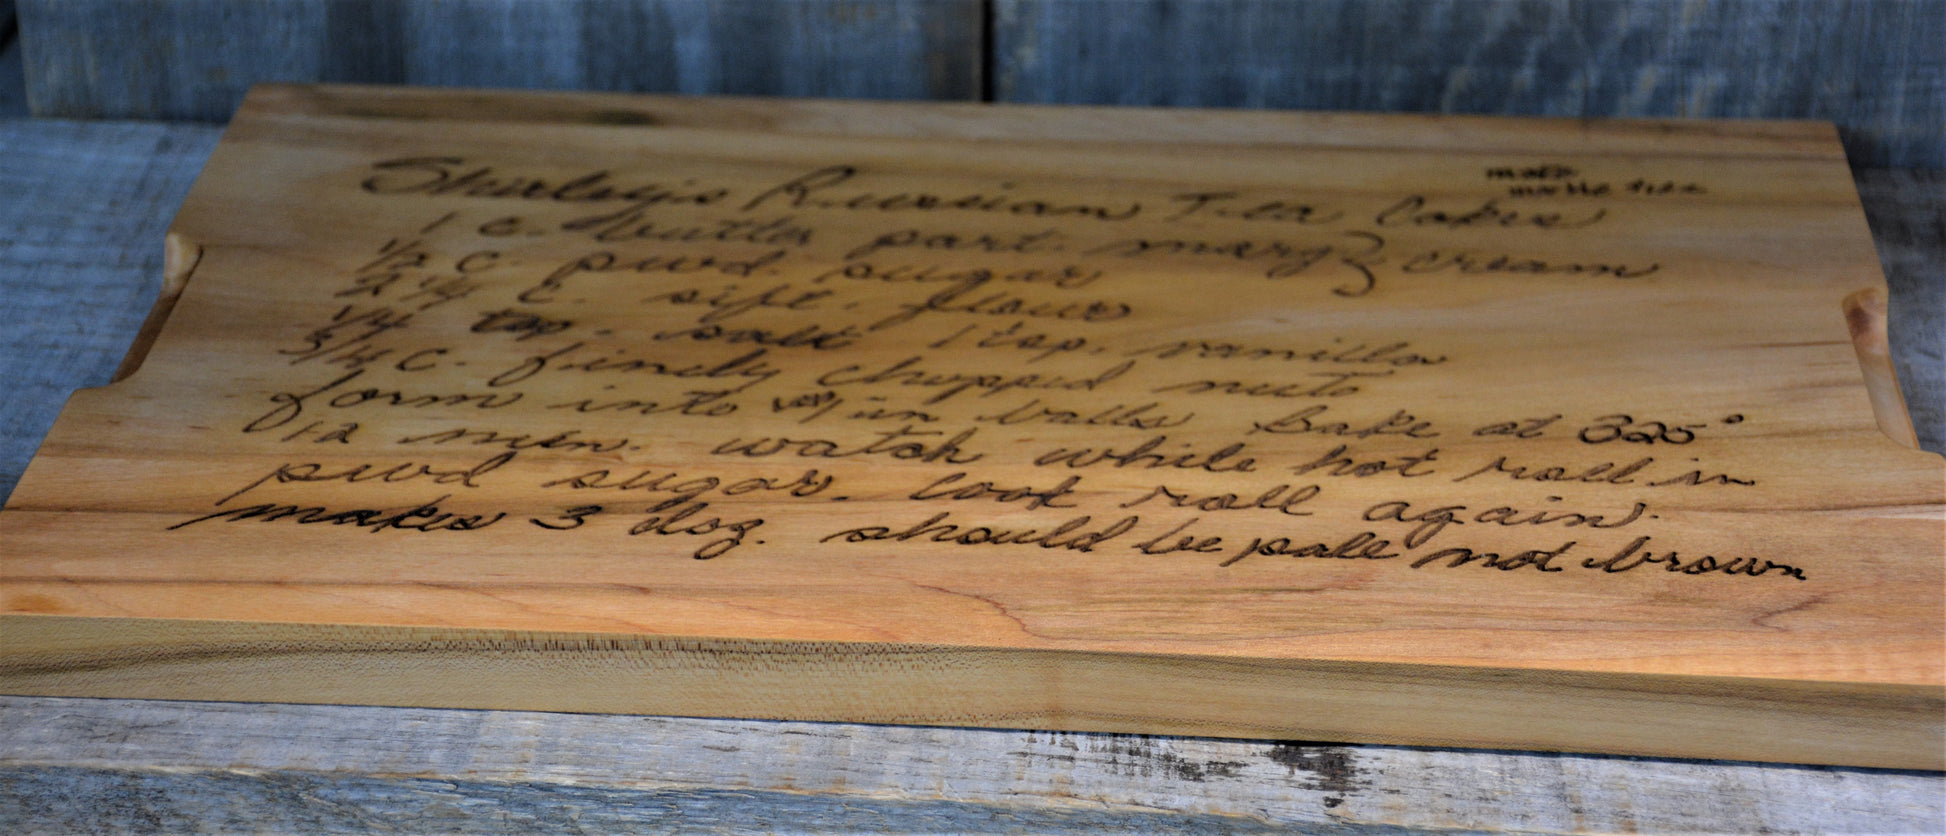 make
marble size
Shirley's Russian Tea Cakes
1 c. butter part. marg} cream
1/2 c. pwd. sugar
2 1/4 c. sift. flour
1/4 tsp. salt 1 tsp. vanilla
3/4 c. finely chopped nuts
form into in balls bake at 325°
12 min. watch while hot roll in
pwd sugar. cool roll again.
makes 3 doz. should be pale not brown